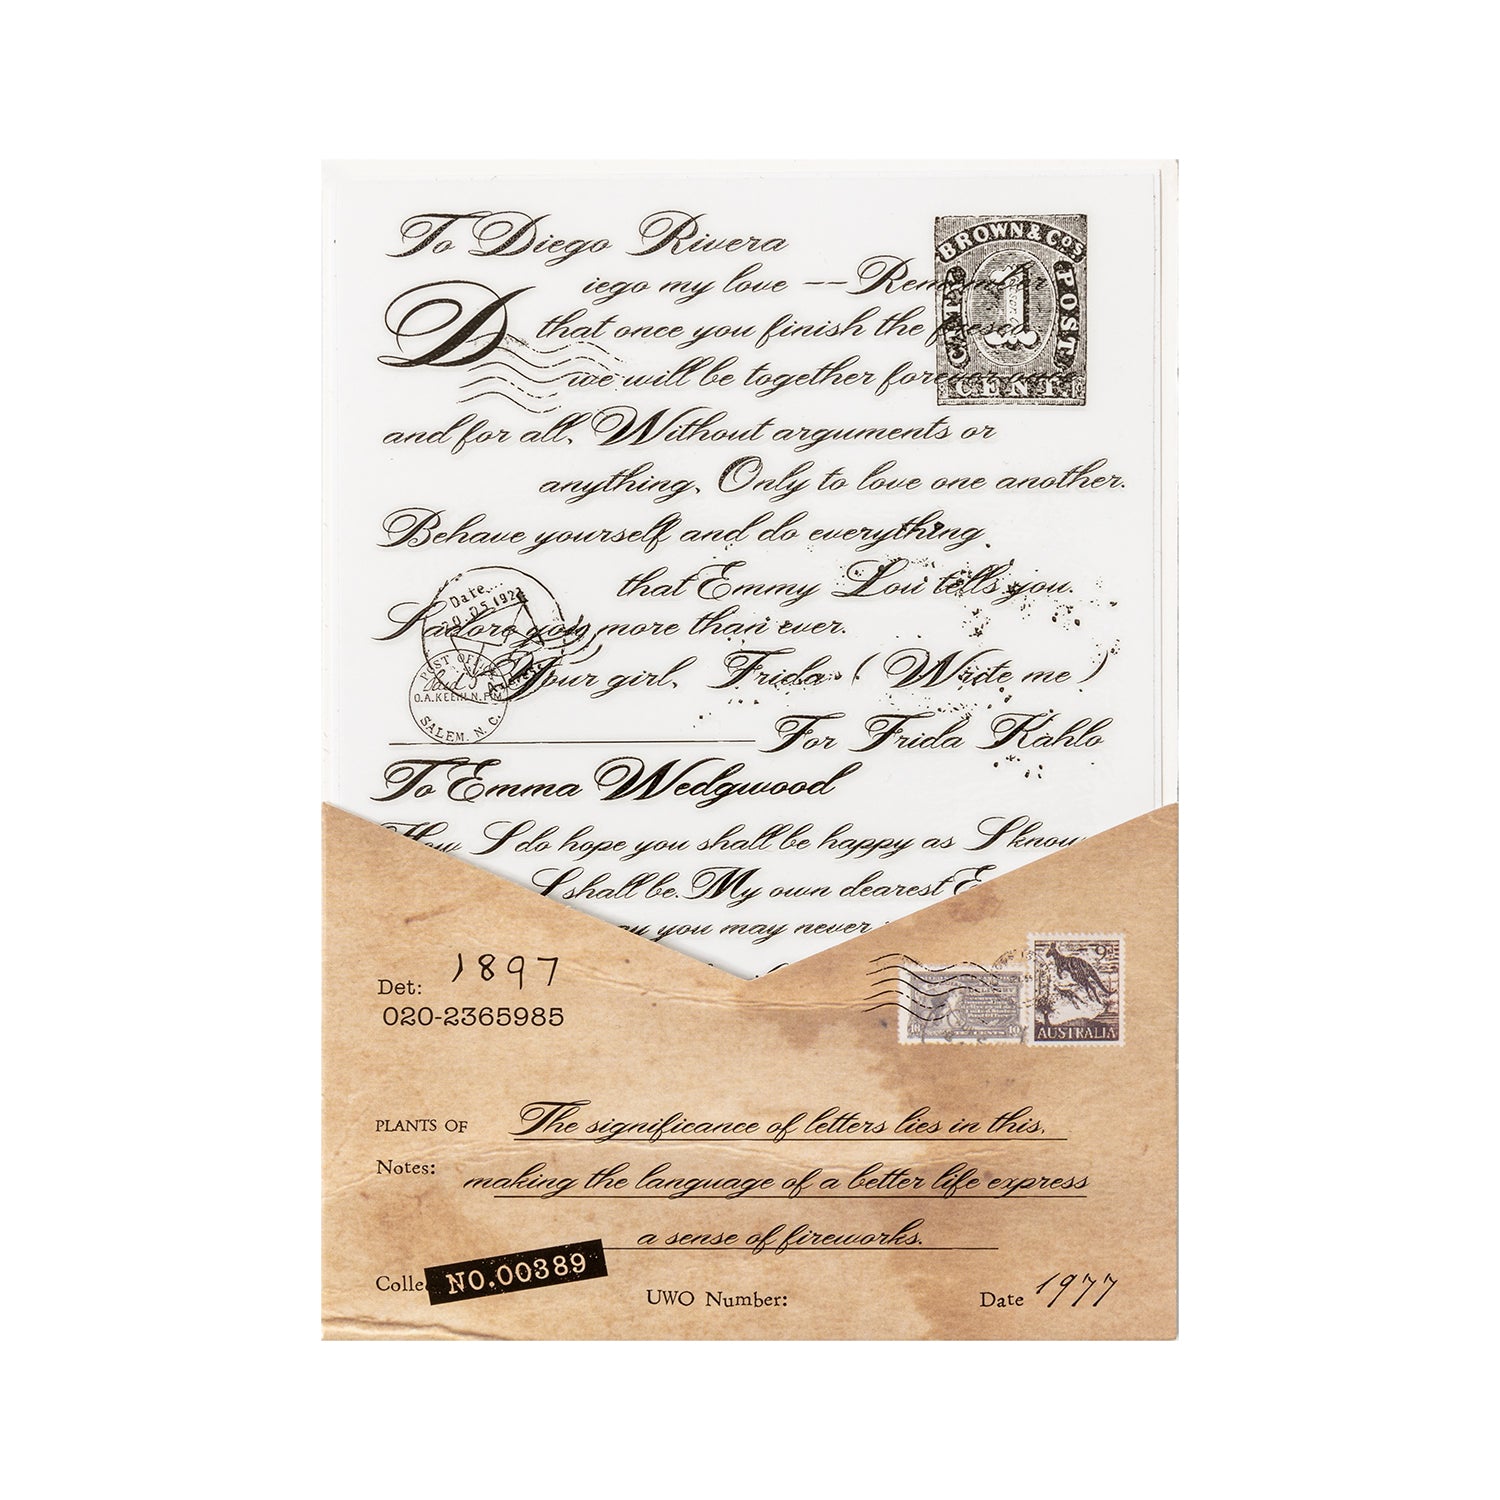 To Diego Rivera
Diego my love -- Remember
that once you finish the fresco
we will be together forever and
and for all, Without arguments or
anything, Only to love one another.
Behave yourself and do everything
that Emmy Lou tells you.
I adore you more than ever.
Your girl, Frida (Write me)
For Frida Kahlo
BROWN & Cos
CITY POST
1
CENT
Date
POST OFFICE
Paid 5
O.A. KEEHLN, P.M
SALEM, N.C.
To Emma Wedgwood
How I do hope you shall be happy as I know
I shall be. My own dearest E
you may never
Det: 1897
020-2365985
10 CENTS 10
9D
AUSTRALIA
PLANTS OF The significance of letters lies in this,
Notes: making the language of a better life express
a sense of fireworks.
Colle NO.00389
UWO Number:
Date 1977